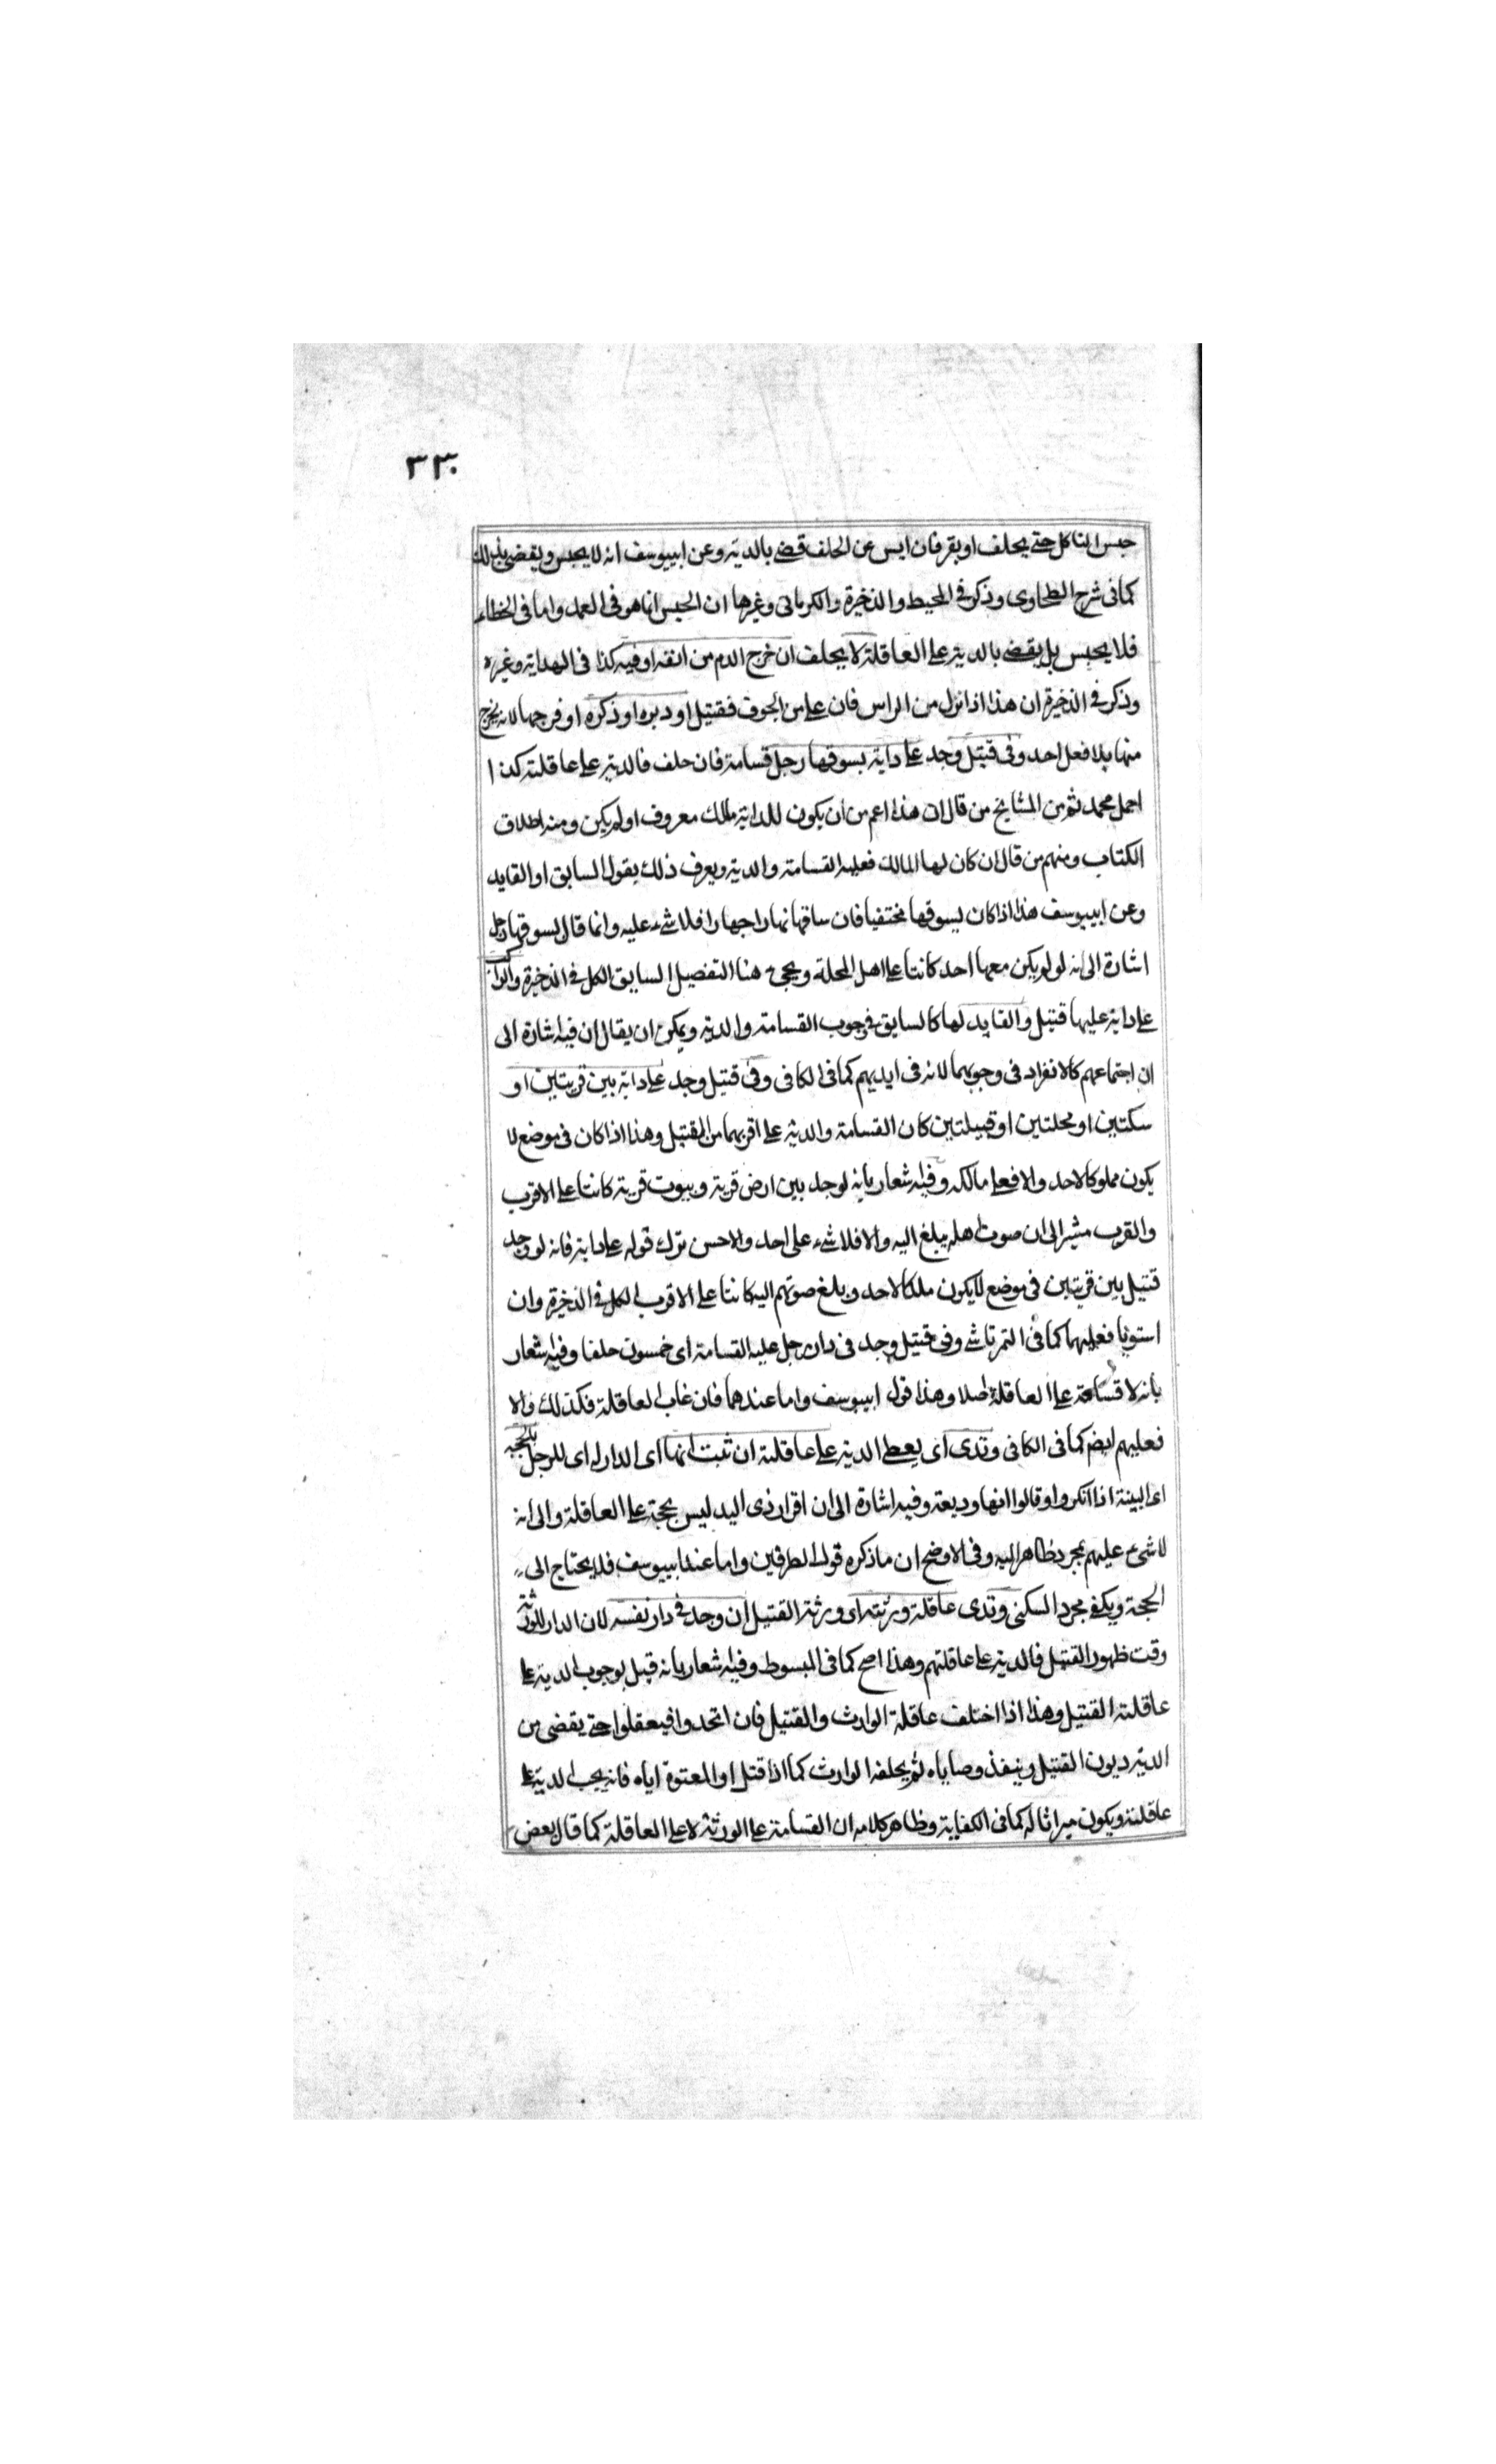 ٣٣٠
حبس الناكل حتى يحلف او يقر فان ايس عن الحلف قضى بالدية وعن ابييوسف انه لا يحبس ويقضى بذلك
كما فى شرح الطحاوى وذكر فى المحيط والذخيرة والكرمانى وغيرها ان الحبس انما هو فى العمد واما فى الخطاء
فلا يحبس بل يقضى بالدية على العاقلة لا يحلف ان خرج الدم من انفه او فيه كذا فى الهداية وغيره
وذكر فى الذخيرة ان هذا اذا نزل من الراس فان علا من الجوف فقتيل او دبره او ذكره او فرجها لانه يخرج
منها بلا فعل احد وفى قتيل وجد على دابة يسوقها رجل قسامة فان حلف فالدية على عاقلته كذا
اجمل محمد ثم من المشايخ من قال ان هذا اعم من ان يكون للدابة مالك معروف او لم يكن ومنه اطلاق
الكتاب ومنهم من قال ان كان لها المالك فعليه القسامة والدية ويعرف ذلك بقول السايق او القايد
وعن ابييوسف هذا اذا كان يسوقها مختفيا فان ساقها نهارا جهارا فلا شىء عليه وانما قال يسوقها رجل
اشارة الى انه لو لم يكن معها احد كانتا على اهل المحلة ويجىء هنا التفصيل السابق الكل فى الذخيرة والراكب
على دابة عليها قتيل والقايد لها كالسايق فى وجوب القسامة والدية ويمكن ان يقال ان فيه اشارة الى
ان اجتماعهم كالانفراد فى وجوبهما لانه فى ايديهم كما فى الكافى وفى قتيل وجد على دابة بين قريتين او
سكتين او محلتين او قبيلتين كان القسامة والدية على اقربهما من القتيل وهذا اذا كان فى موضع لا
يكون مملوكا لاحد والا فعلى مالكه وفيه اشعار بانه لو وجد بين ارض قرية وبيوت قرية كانتا على الاقرب
والقرب مشير الى ان صوت اهله يبلغ اليه والا فلا شىء على احد والاحسن ترك قوله على دابة فانه لو وجد
قتيل بين قريتين فى موضع لا يكون ملكا لاحد و بلغ صوتهم اليه كانتا على الاقرب الكل فى الذخيرة وان
استويا فعليهما كما فى التمرتاشى وفى قتيل وجد فى دار رجل عليه القسامة اى خمسون حلفا وفيه اشعار
بانه لا قسامة على العاقلة اصلا وهذا قول ابييوسف واما عندهما فان غاب العاقلة فكذلك والا
فعليهم ايضم كما فى الكافى وتدى اى يعطى الدية على عاقلته ان ثبت انها اى الدار له اى للرجل بالحجة
اى البينة اذا انكروا او قالوا انها وديعة وفيه اشارة الى ان اقرار ذى اليد ليس بحجة على العاقلة والى انه
لا شىء عليهم بمجرد ظاهر اليه وفى الاوضح ان ما ذكره قول الطرفين واما عند ابييوسف فلا يحتاج الى
الحجة ويكفى مجرد السكنى وتدى عاقلة ورثته اى ورثة القتيل ان وجد فى دار نفسه لان الدار للورثة
وقت ظهور القتيل فالدية على عاقلتهم وهذا اصح كما فى المبسوط وفيه اشعار بانه قيل بوجوب الدية على
عاقلته القتيل وهذا اذا اختلف عاقلة الوارث والقتيل فان اتحدوا فيعقلوا حتى يقضى من
الدية ديون القتيل وينفذ وصاياه ثم يخلفه الوارث كما اذا قتل او المعتوة اياه فانه يجب الدية على
عاقلته ويكون ميراثا له كما فى الكفاية وظاهر كلامه ان القسامة على الورثة لا على العاقلة كما قال بعض